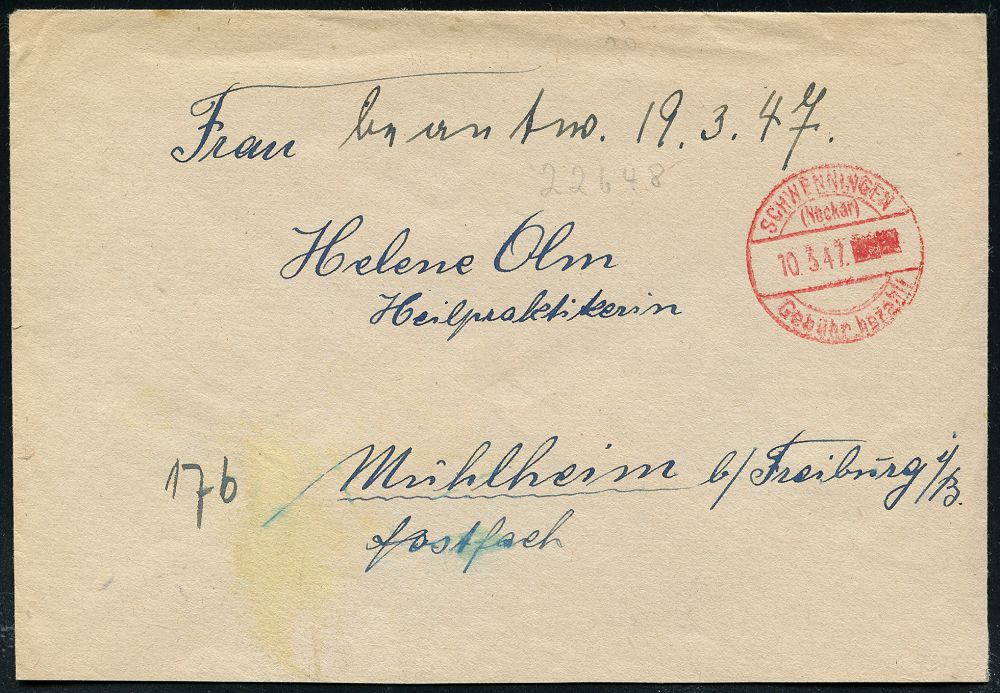 Frau beantw. 19.3.47.
22648
SCHWENNINGEN
(Neckar)
10.3.47.
Gebühr bezahlt
Helene Olm
Heilpraktikerin
17b
Mühlheim b/Freiburg i/B.
Postfach